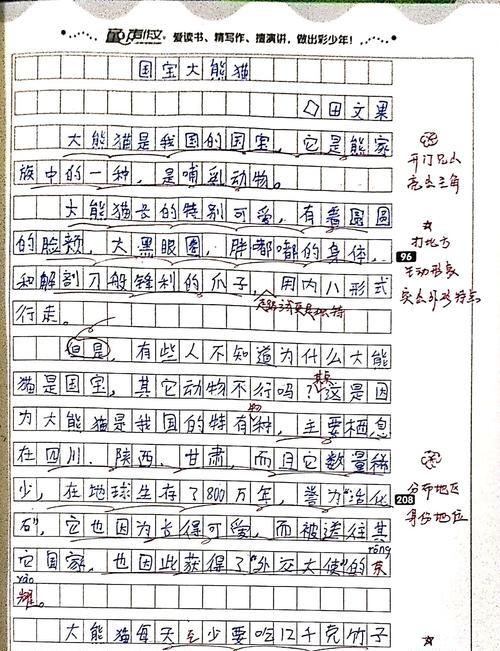 有作文 爱读书、精写作、擅演讲，做出彩少年！
国宝大熊猫
◇田文果
大熊猫是我国的国宝，它是熊家
族中的一种，是哺乳动物。
大熊猫长的特别可爱，有着圆圆
的脸颊，大黑眼圈，胖嘟嘟的身体，
和解剖刀般锋利的爪子，用内八形式
96
行走。
但是，有些人不知道为什么大熊
猫是国宝，其它动物不行吗？这是因
其实
为大熊猫是我国的特有种，主要栖息
物
在四川、陕西、甘肃，而且它数量稀
少，在地球生存了800万年，誉为"活化
208
石"，它也因为长得可爱，而被送往其
它国家，也因此获得了"外交大使"的荣
róng
yào
耀。
大熊猫每天至少要吃12千克竹子
开门见山
亮出主角
生动形象
突出外形特点
分布地区
身份地位